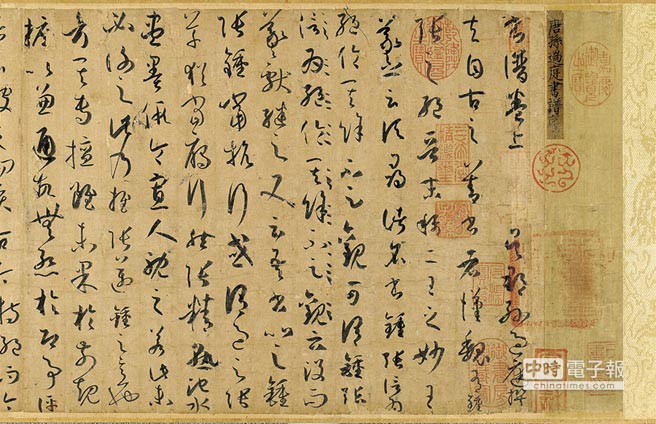 唐孫過庭書譜序
書譜卷上 吳郡孫過庭撰
夫自古之善書者漢魏有鍾
張之絕晉末稱二王之妙王
羲之云頃尋諸名書鍾張信為
絕倫其餘不足觀可謂鍾張
信為絕倫其餘不足觀云沒而
羲獻繼之又云吾書比之鍾
張鍾當抗行或謂過之張
草猶當鴈行然張精熟池水
盡墨假令寡人耽之若此未
必謝之此乃推張邁鍾之意也
考其專擅雖未果於前規
摭以兼通故無慚於即事評
者云彼之四賢古今特絕而今
中時電子報
chinatimes.com